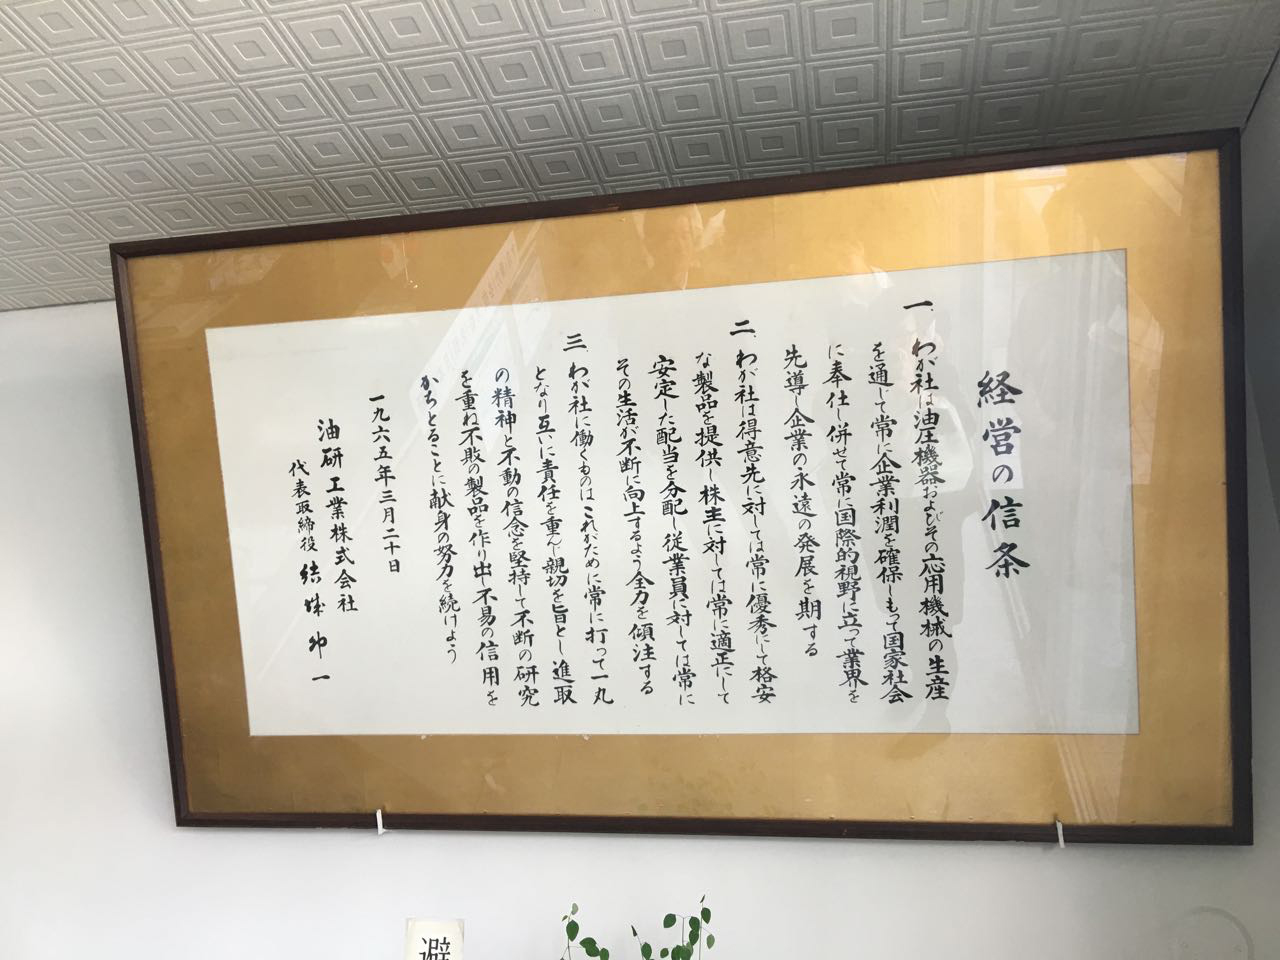 経営の信条
一、わが社は油圧機器およびその応用機械の生産
を通じて常に企業利潤を確保しもって国家社会
に奉仕し併せて常に国際的視野に立って業界を
先導し企業の永遠の発展を期する
二、わが社は得意先に対しては常に優秀にして格安
な製品を提供し株主に対しては常に適正にして
安定した配当を分配し従業員に対しては常に
その生活が不断に向上するよう全力を傾注する
三、わが社に働くものはこれがために常に打って一丸
となり互いに責任を重んじ親切を旨とし進取
の精神と不動の信念を堅持して不断の研究
を重ね不敗の製品を作り出し不易の信用を
かちとることに献身の努力を続けよう
一九六五年三月二十日
油研工業株式会社
代表取締役 結城 一
避